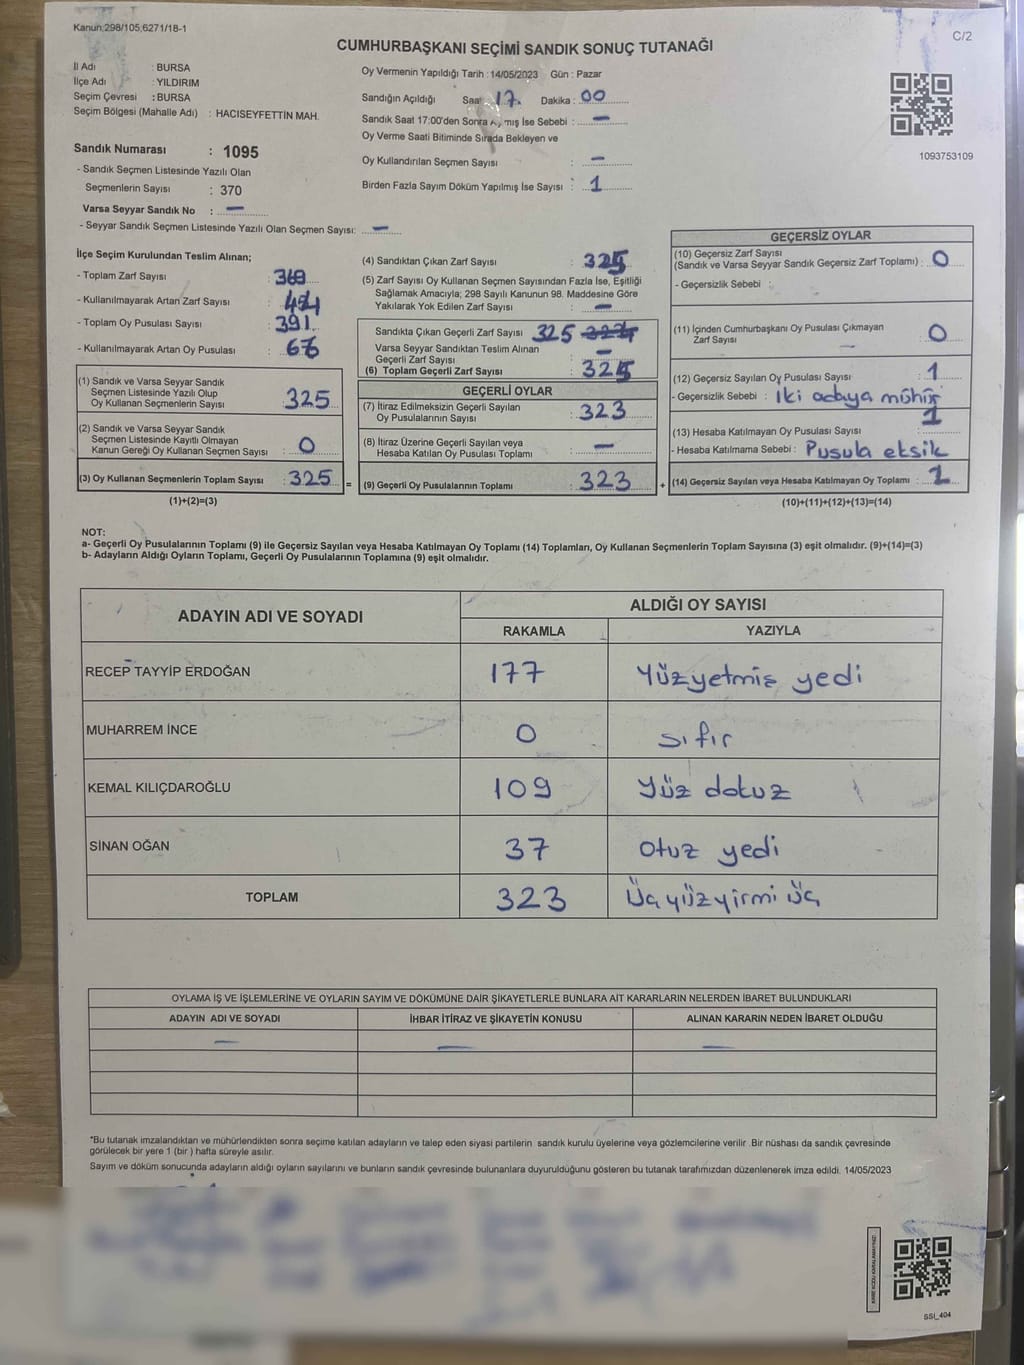 Kanun:298/105,6271/18-1
C/2
CUMHURBAŞKANI SEÇİMİ SANDIK SONUÇ TUTANAĞI
İl Adı : BURSA
İlçe Adı : YILDIRIM
Seçim Çevresi : BURSA
Seçim Bölgesi (Mahalle Adı) : HACISEYFETTİN MAH.
Sandık Numarası : 1095
- Sandık Seçmen Listesinde Yazılı Olan
Seçmenlerin Sayısı : 370
Varsa Seyyar Sandık No : —
- Seyyar Sandık Seçmen Listesinde Yazılı Olan Seçmen Sayısı: —
Oy Vermenin Yapıldığı Tarih : 14/05/2023 Gün : Pazar
Sandığın Açıldığı Saat 17. Dakika : 00
Sandık Saat 17:00'den Sonra Açılmış İse Sebebi : —
Oy Verme Saati Bitiminde Sırada Bekleyen ve
Oy Kullandırılan Seçmen Sayısı : —
Birden Fazla Sayım Döküm Yapılmış İse Sayısı : 1
1093753109
İlçe Seçim Kurulundan Teslim Alınan;
- Toplam Zarf Sayısı :
- Kullanılmayarak Artan Zarf Sayısı :
- Toplam Oy Pusulası Sayısı : 391
- Kullanılmayarak Artan Oy Pusulası : 66
(1) Sandık ve Varsa Seyyar Sandık
Seçmen Listesinde Yazılı Olup
Oy Kullanan Seçmenlerin Sayısı : 325
(2) Sandık ve Varsa Seyyar Sandık
Seçmen Listesinde Kayıtlı Olmayan
Kanun Gereği Oy Kullanan Seçmen Sayısı : 0
(3) Oy Kullanan Seçmenlerin Toplam Sayısı : 325
(1)+(2)=(3)
(4) Sandıktan Çıkan Zarf Sayısı : 325
(5) Zarf Sayısı Oy Kullanan Seçmen Sayısından Fazla İse, Eşitliği
Sağlamak Amacıyla; 298 Sayılı Kanunun 98. Maddesine Göre
Yakılarak Yok Edilen Zarf Sayısı : —
Sandıkta Çıkan Geçerli Zarf Sayısı 325
Varsa Seyyar Sandıktan Teslim Alınan
Geçerli Zarf Sayısı : —
(6) Toplam Geçerli Zarf Sayısı : 325
GEÇERLİ OYLAR
(7) İtiraz Edilmeksizin Geçerli Sayılan
Oy Pusulalarının Sayısı : 323
(8) İtiraz Üzerine Geçerli Sayılan veya
Hesaba Katılan Oy Pusulası Toplamı : —
= (9) Geçerli Oy Pusulalarının Toplamı : 323
GEÇERSİZ OYLAR
(10) Geçersiz Zarf Sayısı
(Sandık ve Varsa Seyyar Sandık Geçersiz Zarf Toplamı) : 0
- Geçersizlik Sebebi :
(11) İçinden Cumhurbaşkanı Oy Pusulası Çıkmayan
Zarf Sayısı : 0
(12) Geçersiz Sayılan Oy Pusulası Sayısı : 1
- Geçersizlik Sebebi : İki adaya mühür
(13) Hesaba Katılmayan Oy Pusulası Sayısı : 1
- Hesaba Katılmama Sebebi : Pusula eksik
+ (14) Geçersiz Sayılan veya Hesaba Katılmayan Oy Toplamı :
(10)+(11)+(12)+(13)=(14)
NOT:
a- Geçerli Oy Pusulalarının Toplamı (9) ile Geçersiz Sayılan veya Hesaba Katılmayan Oy Toplamı (14) Toplamları, Oy Kullanan Seçmenlerin Toplam Sayısına (3) eşit olmalıdır. (9)+(14)=(3)
b- Adayların Aldığı Oyların Toplamı, Geçerli Oy Pusulalarının Toplamına (9) eşit olmalıdır.
ADAYIN ADI VE SOYADI
ALDIĞI OY SAYISI
RAKAMLA YAZIYLA
RECEP TAYYİP ERDOĞAN 177 Yüzyetmiş yedi
MUHARREM İNCE 0 sıfır
KEMAL KILIÇDAROĞLU 109 Yüz dokuz
SİNAN OĞAN 37 Otuz yedi
TOPLAM 323 Üçyüzyirmi üç
OYLAMA İŞ VE İŞLEMLERİNE VE OYLARIN SAYIM VE DÖKÜMÜNE DAİR ŞİKAYETLERLE BUNLARA AİT KARARLARIN NELERDEN İBARET BULUNDUKLARI
ADAYIN ADI VE SOYADI İHBAR İTİRAZ VE ŞİKAYETİN KONUSU ALINAN KARARIN NEDEN İBARET OLDUĞU
— — —
*Bu tutanak imzalandıktan ve mühürlendikten sonra seçime katılan adayların ve talep eden siyasi partilerin sandık kurulu üyelerine veya gözlemcilerine verilir .Bir nüshası da sandık çevresinde
görülecek bir yere 1 (bir ) hafta süreyle asılır.
Sayım ve döküm sonucunda adayların aldığı oyların sayılarını ve bunların sandık çevresinde bulunanlara duyurulduğunu gösteren bu tutanak tarafımızdan düzenlenerek imza edildi. 14/05/2023
KARE KODU KARALAMAYINIZ!
SSI_404